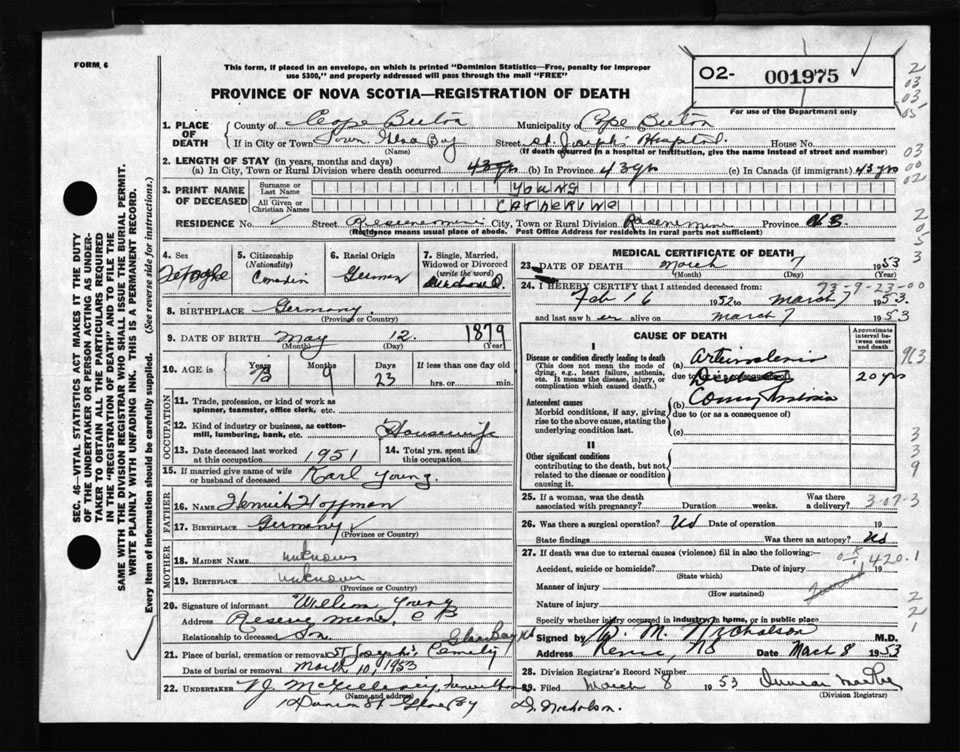 FORM 6
This form, if placed in an envelope, on which is printed "Dominion Statistics—Free, penalty for improper
use $300," and properly addressed will pass through the mail "FREE"
PROVINCE OF NOVA SCOTIA—REGISTRATION OF DEATH
O2- 001975
For use of the Department only
1. PLACE OF DEATH
County of Cape Breton Municipality of Cape Breton
If in City or Town Town Glace Bay Street St Joseph's Hospital House No.
(Name) (If death occurred in a hospital or institution, give the name instead of street and number)
2. LENGTH OF STAY (in years, months and days)
(a) In City, Town or Rural Division where death occurred 43 yrs (b) In Province 43 yrs (c) In Canada (if immigrant) 43 yrs
3. PRINT NAME OF DECEASED
Surname or Last Name YOUNG
All Given or Christian Names CATHERINE
RESIDENCE No. Street City, Town or Rural Division Province N S.
(Residence means usual place of abode. Post Office Address for residents in rural parts not sufficient)
4. Sex
5. Citizenship (Nationality) Canadian
6. Racial Origin German
7. Single, Married, Widowed or Divorced (write the word)
8. BIRTHPLACE Germany
(Province or Country)
9. DATE OF BIRTH May 12 1879
(Month) (Day) (Year)
10. AGE in Years 73 Months 9 Days 23 If less than one day old hrs. or min.
OCCUPATION
11. Trade, profession, or kind of work as
spinner, teamster, office clerk, etc.
12. Kind of industry or business, as cotton-
mill, lumbering, bank, etc. Housewife
13. Date deceased last worked at this occupation 1951 14. Total yrs. spent in this occupation
15. If married give name of wife
or husband of deceased Karl Young.
FATHER
16. NAME Henrich Hoffman
17. BIRTHPLACE Germany ✓
(Province or Country)
MOTHER
18. MAIDEN NAME unknown
19. BIRTHPLACE unknown
(Province or Country)
20. Signature of informant William Young
Address Reserve mines, C B
Relationship to deceased Son.
21. Place of burial, cremation or removal St Joseph's Cemetery Glace Bay NS
Date of burial or removal March 10, 1953
22. UNDERTAKER V.J. McGillivary, Funeral Home
(Name and address)
Union St Glace Bay
MEDICAL CERTIFICATE OF DEATH
23. DATE OF DEATH March 7 1953
(Month) (Day)
73-9-23-00
24. I HEREBY CERTIFY that I attended deceased from:
Feb 16 1952 to March 7 1953.
and last saw her alive on March 7 1953
CAUSE OF DEATH
Approximate interval between onset and death
I
Disease or condition directly leading to death
(This does not mean the mode of
dying, e.g., heart failure, asthenia,
etc. It means the disease, injury, or
complication which caused death.)
(a)
due to 20 yrs
Antecedent causes
Morbid conditions, if any, giving
rise to the above cause, stating the
underlying condition last.
(b)
due to (or as a consequence of)
(c)
II
Other significant conditions
contributing to the death, but not
related to the disease or condition
causing it.
25. If a woman, was the death
associated with pregnancy? Duration weeks. Was there a delivery? 3-07-3
26. Was there surgical operation? No Date of operation 19
State findings Was there an autopsy? No
27. If death was due to external causes (violence) fill in also the following:— 420.1
Accident, suicide or homicide? Date of injury 19
(State which)
Manner of injury
(How sustained)
Nature of injury
Specify whether injury occurred in industry, in home, or in public place
Signed by W. M. Nicholson M.D.
Address NS Date March 8 1953
28. Division Registrar's Record Number
29. Filed March 8 1953
(Division Registrar)
D. Nicholson.
SEC. 46—VITAL STATISTICS ACT MAKES IT THE DUTY
OF THE UNDERTAKER OR PERSON ACTING AS UNDER-
TAKER TO OBTAIN ALL THE PARTICULARS REQUIRED
IN THE "REGISTRATION OF DEATH" AND TO FILE THE
SAME WITH THE DIVISION REGISTRAR WHO SHALL ISSUE THE BURIAL PERMIT.
WRITE PLAINLY WITH UNFADING INK. THIS IS A PERMANENT RECORD.
Every item of information should be carefully supplied. (See reverse side for instructions.)